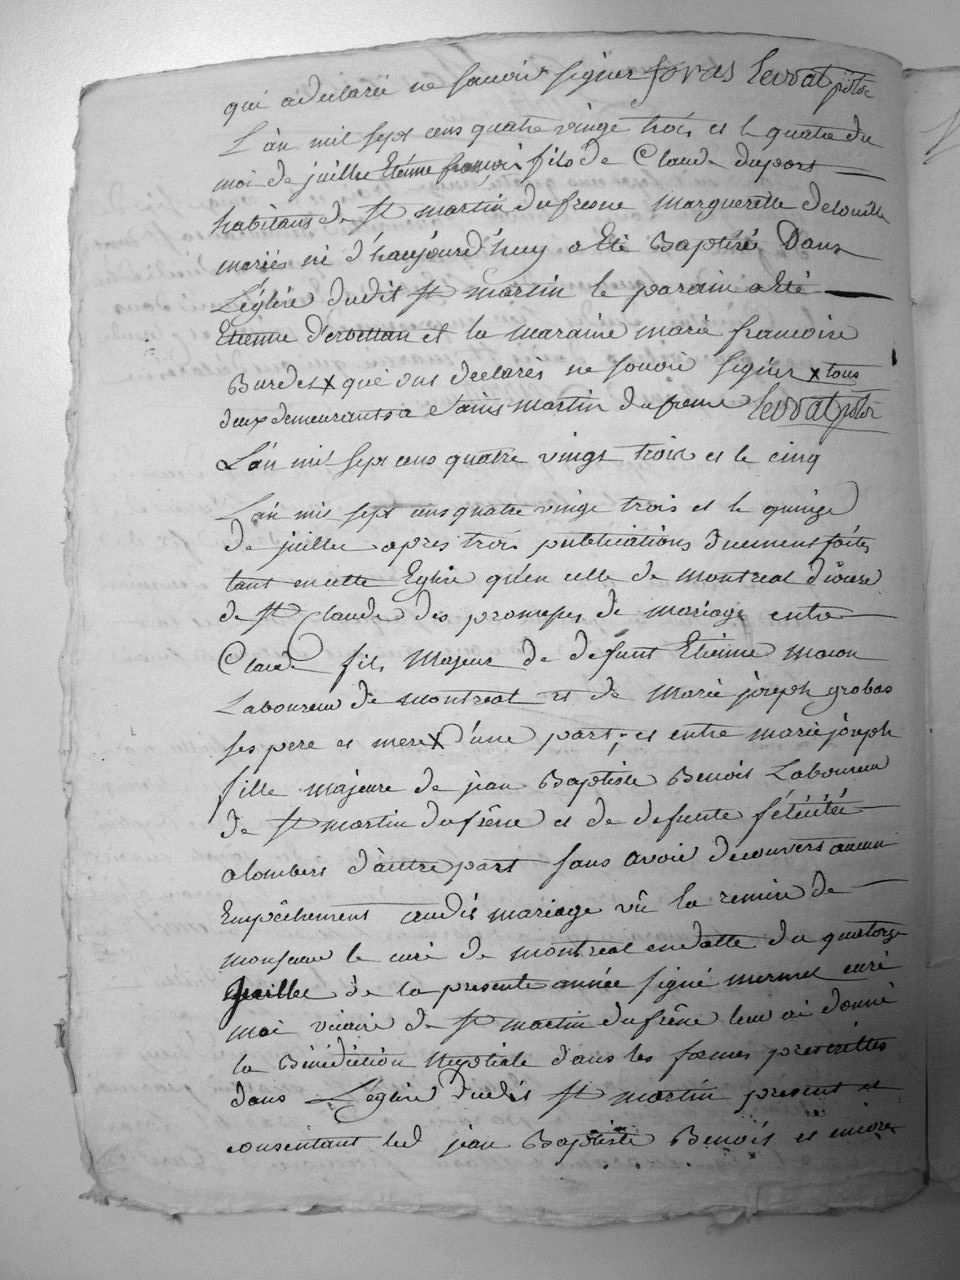 qui a declaré ne savoir signer Levrat
L'an mil sept cens quatre vingt trois et le quatre du
moi de juillet Etienne françois fils de Claude dupors
habitans de St martin du fresne marguerette
mariés né d'haujourd'huy a eté Baptisé Dans
L'église dudit St martin le parain a eté
Etienne et la maraine marie francoise
Burdet x qui ons declarés ne savoir signer x tous
deux demeurants a Saint martin du frene Levrat
L'an mil sept cens quatre vingt trois et le cinq
L'an mil sept cens quatre vingt trois et le quinze
de juillet apres trois publications duement faites
tant en cette Eglise qu'en celle de montreal diocese
de St Claude des promesses de mariage entre
Claude fils Majeur de defunt Etienne
Laboureur de montreal et de Marie joseph grobas
ses pere et mere x d'une part, et entre marie joseph
fille majeure de jean Baptiste Benoit Laboureur
de St martin du frêne et de defunte félicitée
alombert d'autre part sans avoir decouvers aucun
Empêchement audit mariage vû la remise de
monsieur le curé de montreal en datte du quatorze
Juillet de la presente année signé mermet curé
moi vicaire de St martin du frêne leur ai donné
la Bénédiction Nuptiale dans les formes prescrittes
dans L'église dudit St martin présent et
consentant led jean Baptiste Benoit et encore